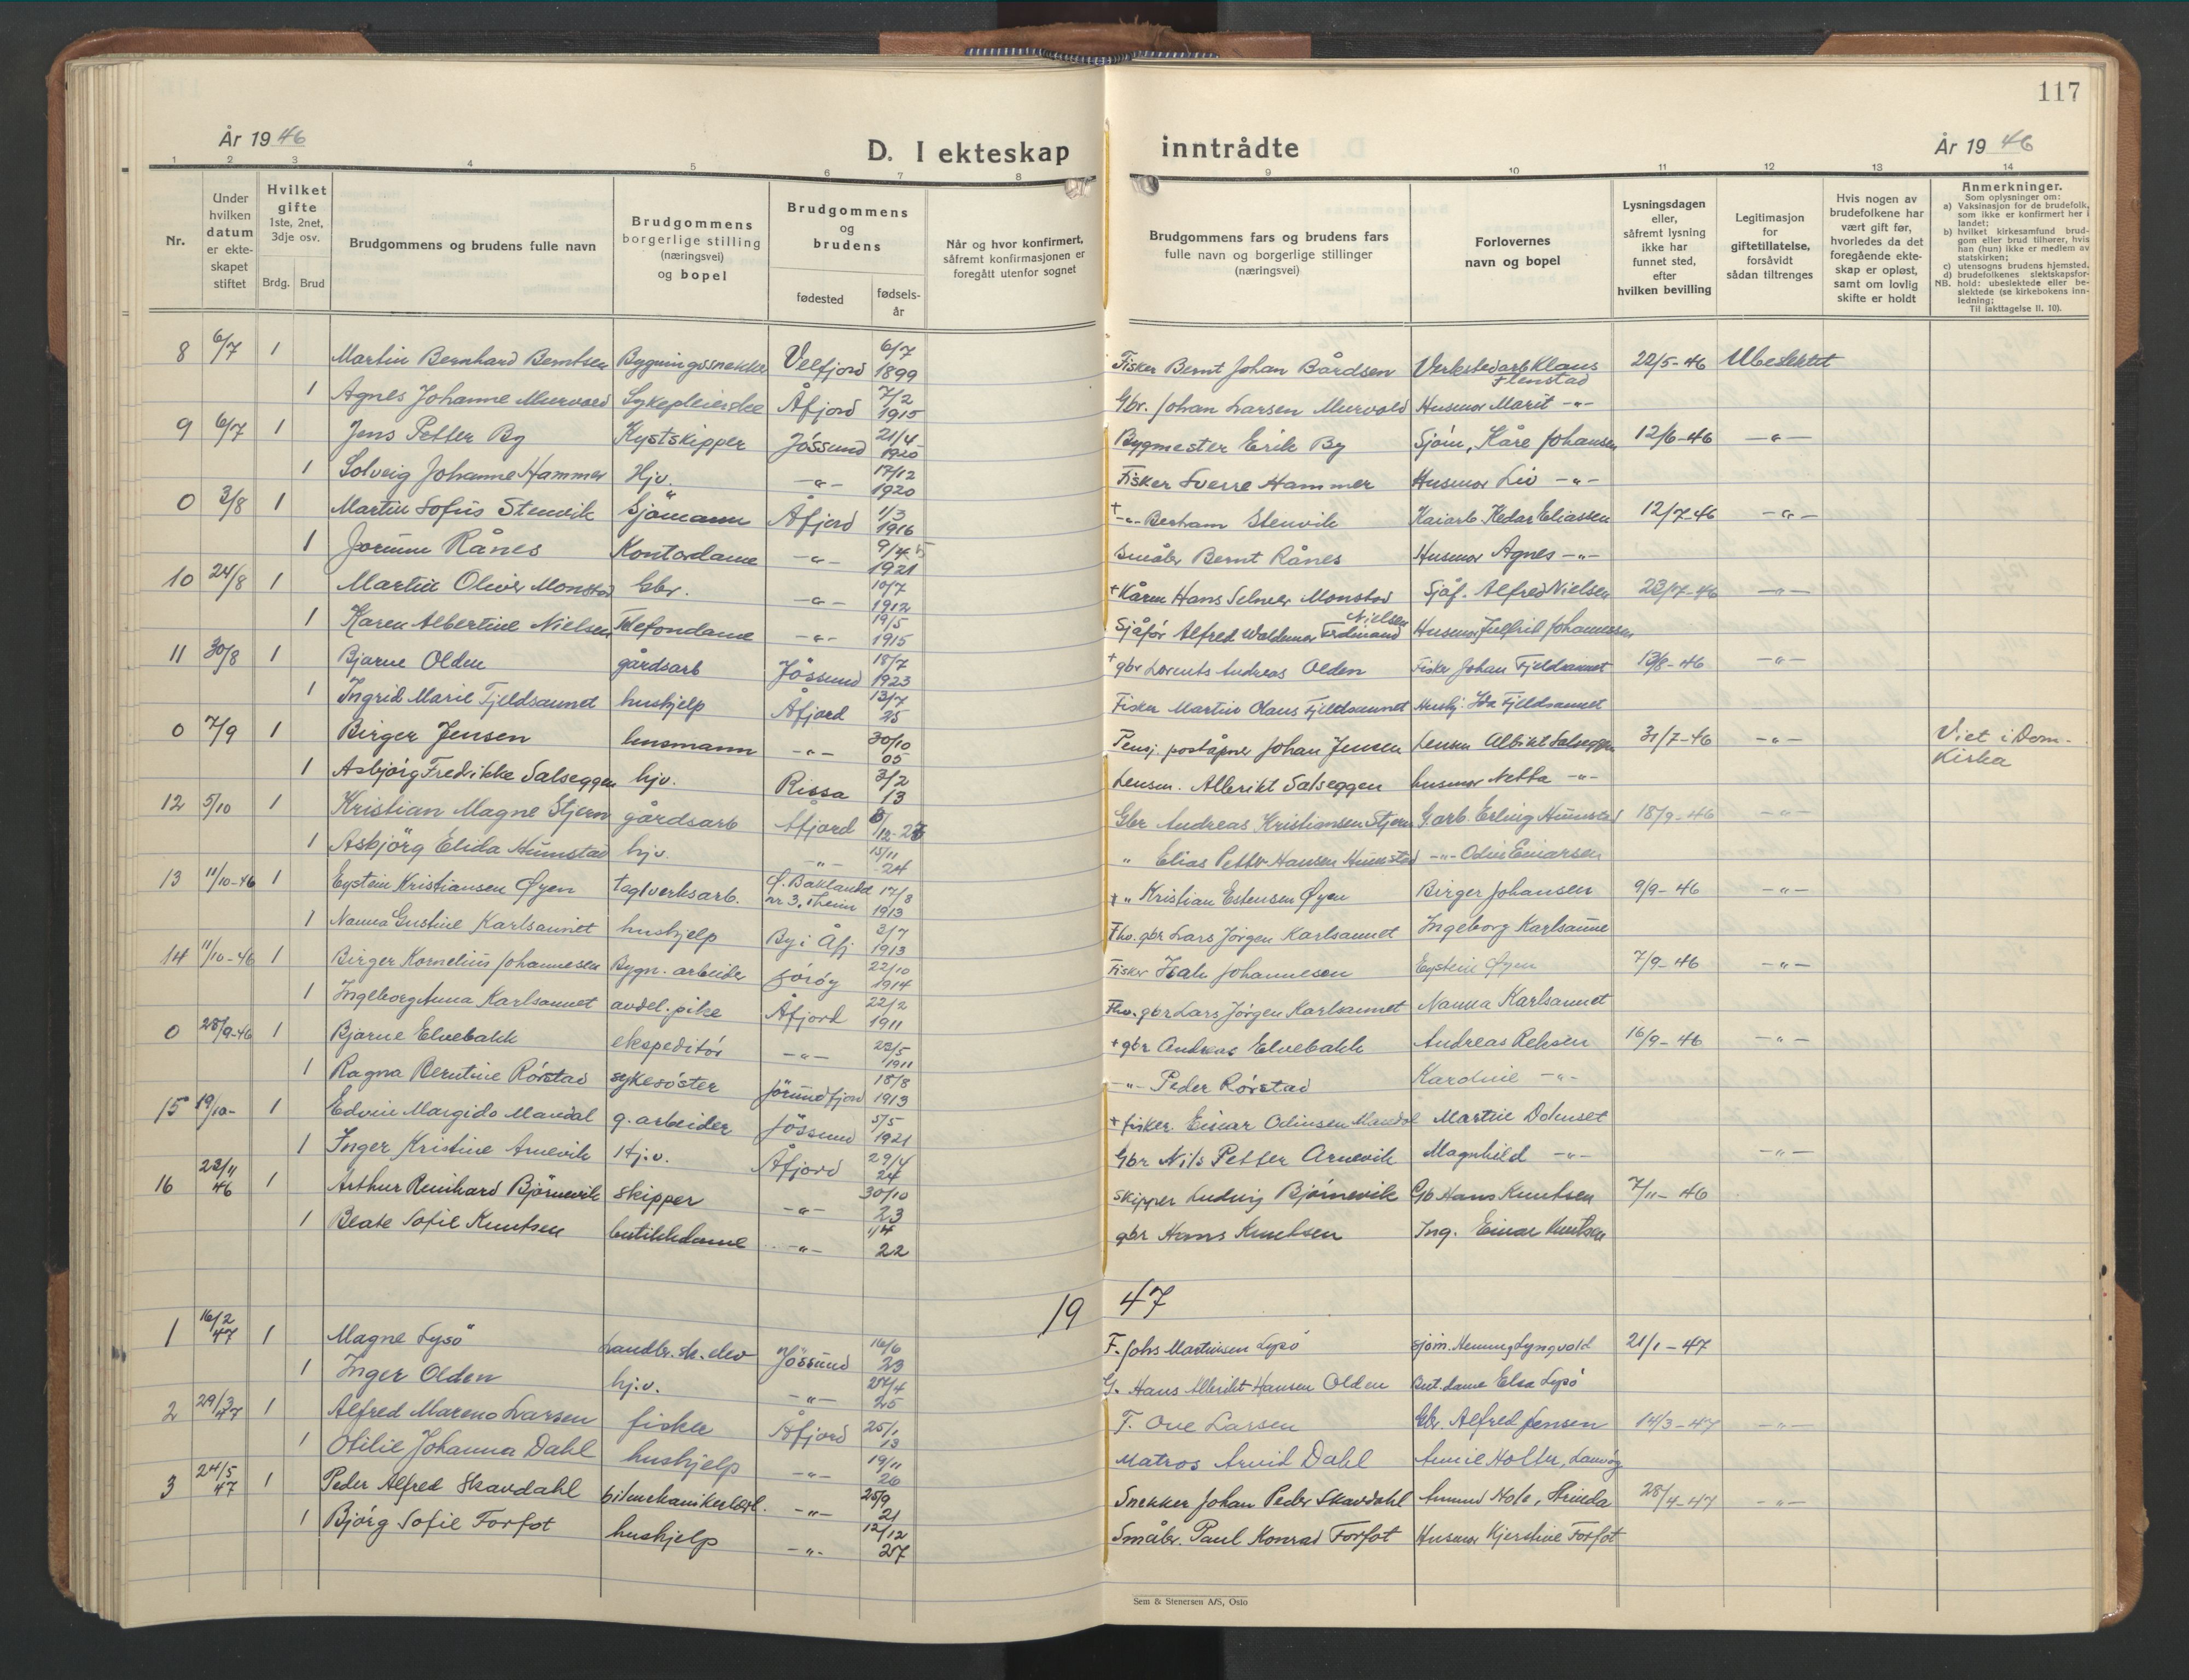 117
År 1946
D. I ekteskap inntrådte
År 1946
1 2 3 4 5 6 7 8 9 10 11 12 13 14
Nr.
Under hvilken datum er ekteskapet stiftet
Hvilket gifte 1ste, 2net, 3dje osv.
Brdg. Brud
Brudgommens og brudens fulle navn
Brudgommens borgerlige stilling (næringsvei) og bopel
Brudgommens og brudens
fødested
fødsels-år
Når og hvor konfirmert, såfremt konfirmasjonen er foregått utenfor sognet
Brudgommens fars og brudens fars fulle navn og borgerlige stillinger (næringsvei)
Forlovernes navn og bopel
Lysningsdagen eller, såfremt lysning ikke har funnet sted, efter hvilken bevilling
Legitimasjon for giftetillatelse, forsåvidt sådan tiltrenges
Hvis nogen av brudefolkene har vært gift før, hvorledes da det foregående ekteskap er opløst, samt om lovlig skifte er holdt
Anmerkninger.
Som oplysninger om:
a) Vaksinasjon for de brudefolk, som ikke er konfirmert her i landet;
b) hvilket kirkesamfund brudgom eller brud tilhører, hvis han (hun) ikke er medlem av statskirken;
c) utensogns brudens hjemsted,
d) brudefolkenes slektskapsforhold: ubeslektede eller beslektede (se kirkebokens innledning;
NB.
Til iakttagelse ll. 10).
8 6/7 1 Martin Bernhard Berntsen Bygningssnekker Velfjord 6/7 1899 Fisker Bernt Johan Bårdsen Verkstedarb Klaus Flenstad 22/5-46 Ubeslektet
1 Agnes Johanne Murvold Sykepleierske Åfjord 7/2 1915 Gbr. Johan Larsen Murvold Husmor Marit -"-
9 6/7 1 Jens Petter By Kystskipper Jössund 21/4 1920 Bygmester Erik By Sjöm, Kåre Johansen 12/6-46 -"-
1 Solveig Johanne Hammer Hjv. -"- 17/12 1920 Fisker Sverre Hammer Husmor Liv -"-
0 3/8 1 Martin Sofus Stenvik Sjömann Åfjord 1/3 1916 + -"- Berham Stenvik Kaiarb. Kedar Eliassen 12/7-46 -"-
1 Jorunn Rånes Kontordame -"- 9/4 1921 Småbr Bernt Rånes Husmor Agnes -"-
10 24/8 1 Martin Oliver Monstad Gbr. -"- 10/7 1912 + Hans Selmer Monstad Sjåf. Alfred Nielsen 23/7-46 -"-
1 Karen Albertine Nielsen Telefondame -"- 19/5 1915 Sjåfør Alfred Waldemar Ferdinand Nielsen Husmor Johannesen
11 30/8 1 Bjarne Olden gårdsarb Jössund 18/7 1923 + gbr Lorents Andreas Olden Fisker Johan Fjeldsaunet 13/8-46 -"-
1 Ingrid Marie Fjeldsaunet hushjelp Åfjord 13/7 25 Fisker Martin Olaus Fjeldsaunet Hushj. Ida Fjeldsaunet
0 7/9 1 Birger Jensen lensmann -"- 30/10 05 Pensj. poståpner Johan Jensen Lensm Albrikt Salseggen 31/7-46 -"- Viet i Dom-
kirka
1 Asbjörg Fredrikke Salseggen hjv. Rissa 3/2 13 Lensm. Albrikt Salseggen husmor Netta -"-
12 5/10 1 Kristian Magne Stjern gårdsarb Åfjord Gbr Andreas Kristiansen Stjern G arb. Erling Humstad 18/9-46 -"-
1 Asbjörg Elida Humstad hjv. -"- 15/11 24 " Elias Petter Hansen Humstad -"- Odin Einarsen
13 11/10-46 1 Eystein Kristiansen Øyen taglverksarb. Ø. Baklandet nr 3. Theim 17/8 1913 + " Kristian Estensen Øyen Birger Johansen 9/9-46 -"-
1 Nanna Gustine Karlsaunet hushjelp By i Åfj 3/7 1913 Fhv. gbr Lars Jörgen Karlsaunet Ingeborg Karlsaune
14 11/10-46 1 Birger Kornelius Johannesen Bygn. arbeider 22/10 1914 Fisker Isak Johannesen Eystein Øyen 7/9-46 -"-
1 Ingeborg Anna Karlsaunet avdel.pike Åfjord 22/2 1911 Fhv. gbr Lars Jörgen Karlsaunet Nanna Karlsaunet
0 28/9-46 1 Bjarne Elvebakk ekspeditör -"- 23/5 1911 + gbr Andreas Elvebakk Andreas Reksen 16/9-46 -"-
1 Ragna Berntine Rörstad sykesöster Jörundfjord 18/8 1913 -"- Peder Rörstad Karoline -"-
15 19/10- 1 Edvin Margido Mandal g. arbeider Jössund 5/5 1921 + fisker. Einar Odinsen Mandal Martin Dokset
1 Inger Kristine Arnevik Hj.v. Åfjord 29/4 24 Gbr Nils Petter Arnevik Magnhild -"- -"-
16 23/11 46 1 Arthur Reinhard Björnevik skipper -"- 30/10 23 skipper Ludvig Björnevik Gb Hans Knutsen 7/11-46
1 Beate Sofie Knutsen butikkdame -"- 1/4 22 gbr Hans Knutsen Ing. Einar Knutsen
19 47
1 16/2 47 1 Magne Lysö Landbr. sk. elev Jössund 16/6 23 F. Johs Martinsen Lysö sjöm. Henning Lyngvold 21/1-47
1 Inger Olden hj.v. -"- 27/4 25 G. Hans Albrikt Hansen Olden But.dame Elsa Lysö
2 29/3 47 1 Alfred Mareno Larsen fisker Åfjord 25/1 13 F. Ove Larsen Gbr. Alfred Jensen 14/3-47 -"-
1 Otilie Johanna Dahl hushjelp -"- 19/11 20 Matros Arvid Dahl Annie Holter,
3 24/5 47 1 Peder Alfred Skavdahl bilmekanikerlærl. -"- 25/9 21 Snekker Johan Peder Skavdahl Amund Hole, Strinda 28/4-47 -"-
1 Björg Sofie Forfot hushjelp -"- 12/12 27 Småbr. Paul Konrad Forfot Husmor Kjerstine Forfot
Sem & Stenersen A/S, Oslo